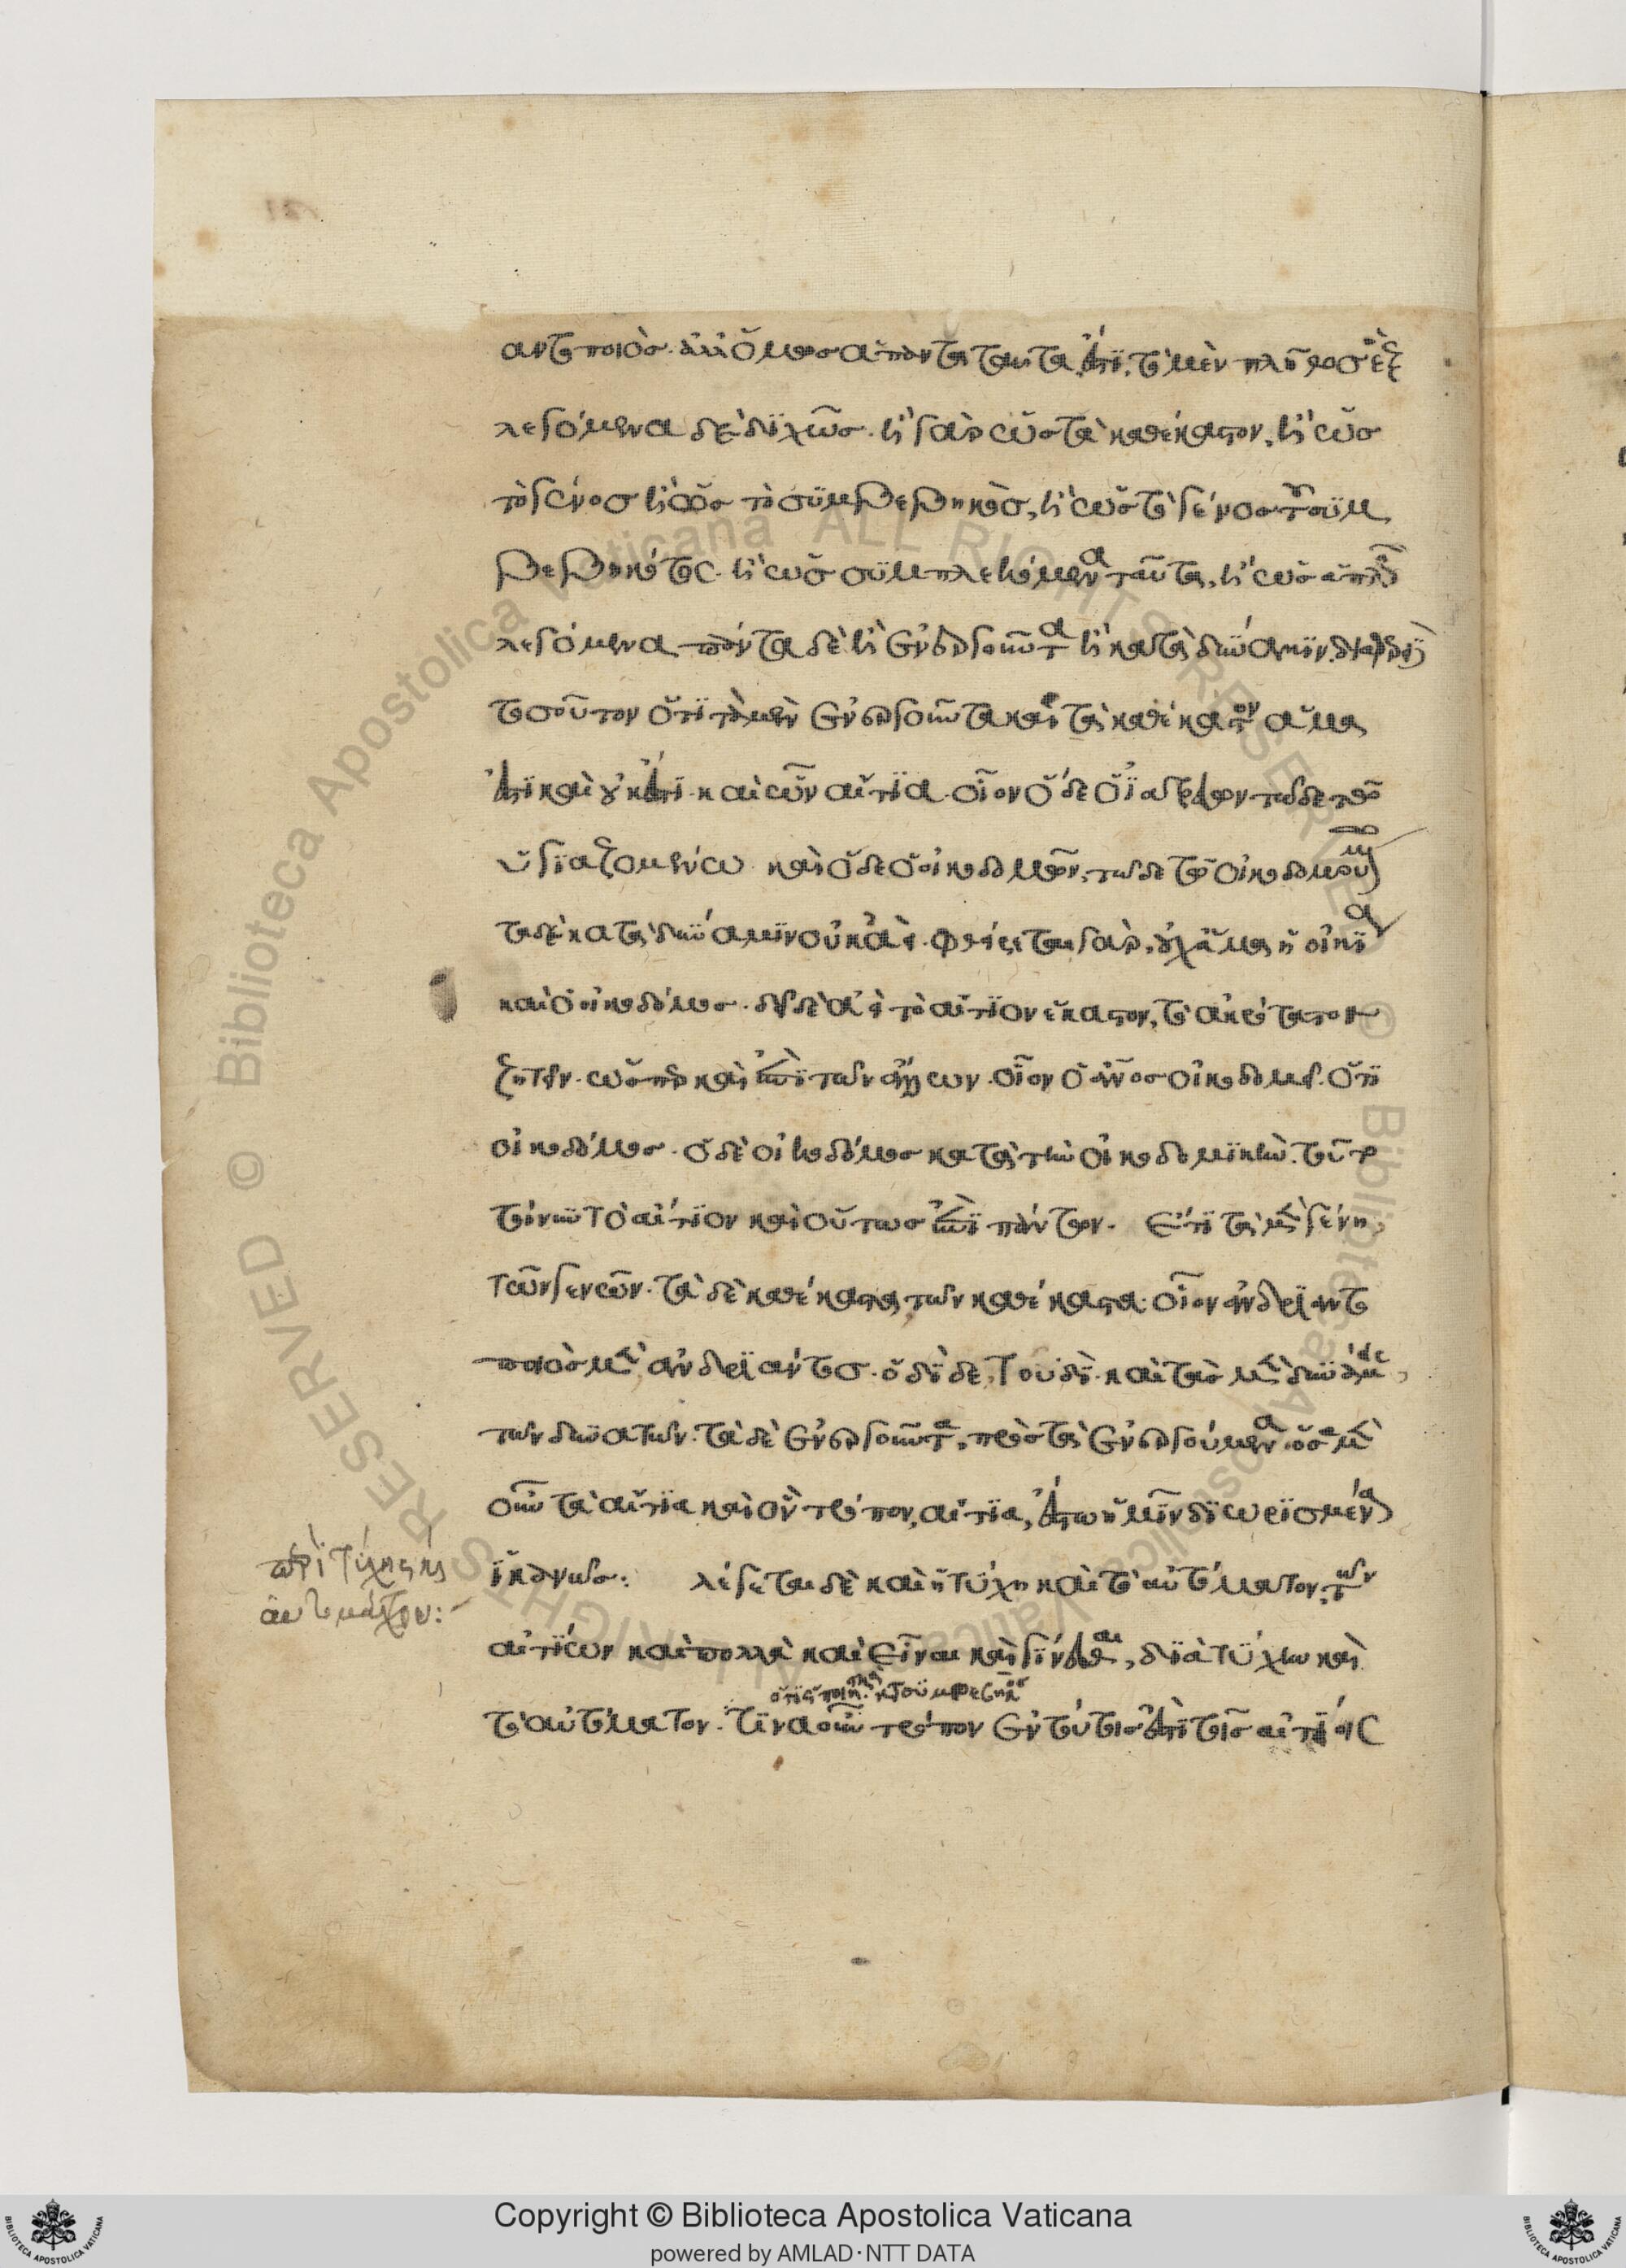 αντοποιὸσ· ἀλλ' ὅμωσ ἅπαντα ταῦτα ἐστὶ, τὸ μὲν πλῆθοσ ἓξ
λεγόμενα δὲ διχῶσ. ἢ γὰρ ὡσ τὰ καθέκαστον, ἢ ὡσ
τὸ γένοσ ἢ ὡσ τὸ συμβεβηκὸσ, ἢ ὡσ τὸ γένοσ τοῦ συμ
βεβηκότοσ. ἢ ὡσ συμπλεκόμενα ταῦτα, ἢ ὡσ ἁπλῶσ
λεγόμενα πάντα δὲ ἢ ἐνεργοῦντα ἢ κατὰ δύναμιν. διαφέρει
τοσοῦτον ὅτι τὰ μὲν ἐνεργοῦντα καὶ τὰ καθέκαστον ἅμα
ἐστὶ καὶ οὐκ ἐστὶ καὶ ὧν αἴτια. οἷον ὅδε ὁ ἰατρεύων τῶδε τῶ
ὑγιαζομένω καὶ ὅδε ὁ οἰκοδομῶν, τῶδε τῶ οἰκοδομουμένω
τὰ δὲ κατὰ δύναμιν οὐκ ἀεί. φθείρεται γὰρ, οὐχ ἅμα ἡ οἰκία
καὶ ὁ οἰκοδόμοσ. δεῖ δὲ ἀεὶ τὸ αἴτιον ἕκαστον, τὸ ἀκρότατον
ζητεῖν. ὥσπερ καὶ ἐπὶ τῶν ἄλλων. οἷον ὁ ἄνοσ οἰκοδομεῖ. ὅτι
οἰκοδόμοσ. ὁ δὲ οἰκοδόμοσ κατὰ τὴν οἰκοδομικὴν. τοῦτο
τοίνυν τὸ αἴτιον καὶ οὕτωσ ἐπὶ πάντων. ἔτι τὰ μὲν γένη,
τῶν γενῶν. τὰ δὲ καθέκαστα, τῶν καθέκαστα. οἷον ἀνδριαντο
ποιὸσ μὲν ἀνδριάντοσ. ὁδὶ δὲ, τουδὶ. καὶ τὰσ μὲν δυνάμεις,
τῶν δυνατῶν. τὰ δὲ ἐνεργοῦντα, πρὸσ τὰ ἐνεργούμενα. ὅσα μὲν
οὖν τὰ αἴτια καὶ ὃν τρόπον, αἴτια, ἔστω ἡμῖν διωρισμένα
ἱκανῶσ: λέγεται δὲ καὶ ἡ τύχη καὶ τὸ αὐτόματον, τῶν
περὶ τύχης καὶ
αὐτομάτου:
αἰτίων καὶ πολλὰ καὶ εἶναι καὶ γίνεσθαι, διὰ τύχην καὶ
τὸ αὐτόματον. τίνα οὖν τρόπον ἐν τούτοισ ἐστὶ τοῖσ αἰτίοις